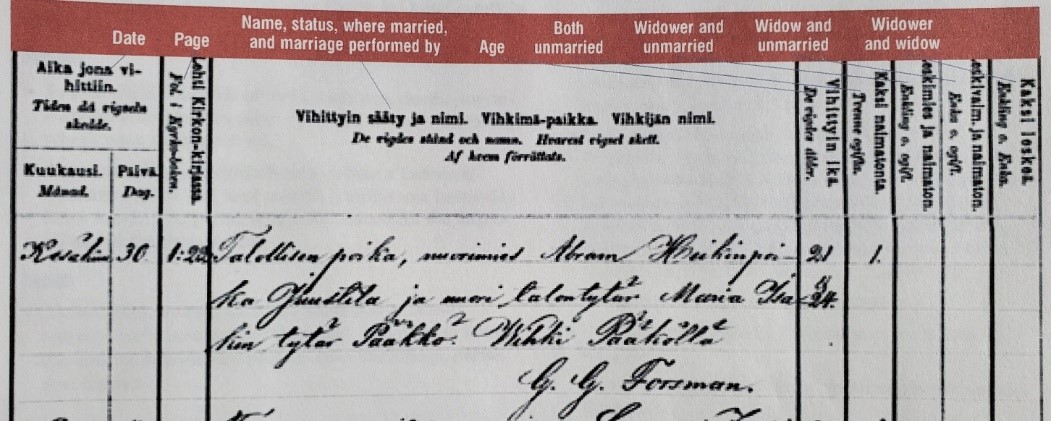 Date Page Name, status, where married, and marriage performed by Age Both unmarried Widower and unmarried Widow and unmarried Widower and widow
Aika jona vihittiin.
Tiden då vigseln skedde.
Kuukausi. Månad.
Päivä Dag.
Lehti Kirkon-kirjassa.
Fol. i Kyrko-boken.
Vihittyin sääty ja nimi. Vihkimä-paikka. Vihkijän nimi.
De vigdes stånd och namn. Hvarest vigsel skett.
Af hvem förrättats.
Vihittyin ikä.
De vigdes ålder.
Kaksi naimatonta.
Tvenne ogifta.
Leskimies ja naimaton.
Enkling o. ogift.
Leskivaim. ja naimaton.
Enka o. ogift.
Kaksi leskeä.
Enkling o. Enka.
30 1:22 Talollisen poika, nuorimies Abram Heikinpoi- 21 1.
ka Juustila ja nuori talontytär Maria Isa- 24.
kin tytär Pääkkö. Wihki Pääköllä
G. G. Forsman.